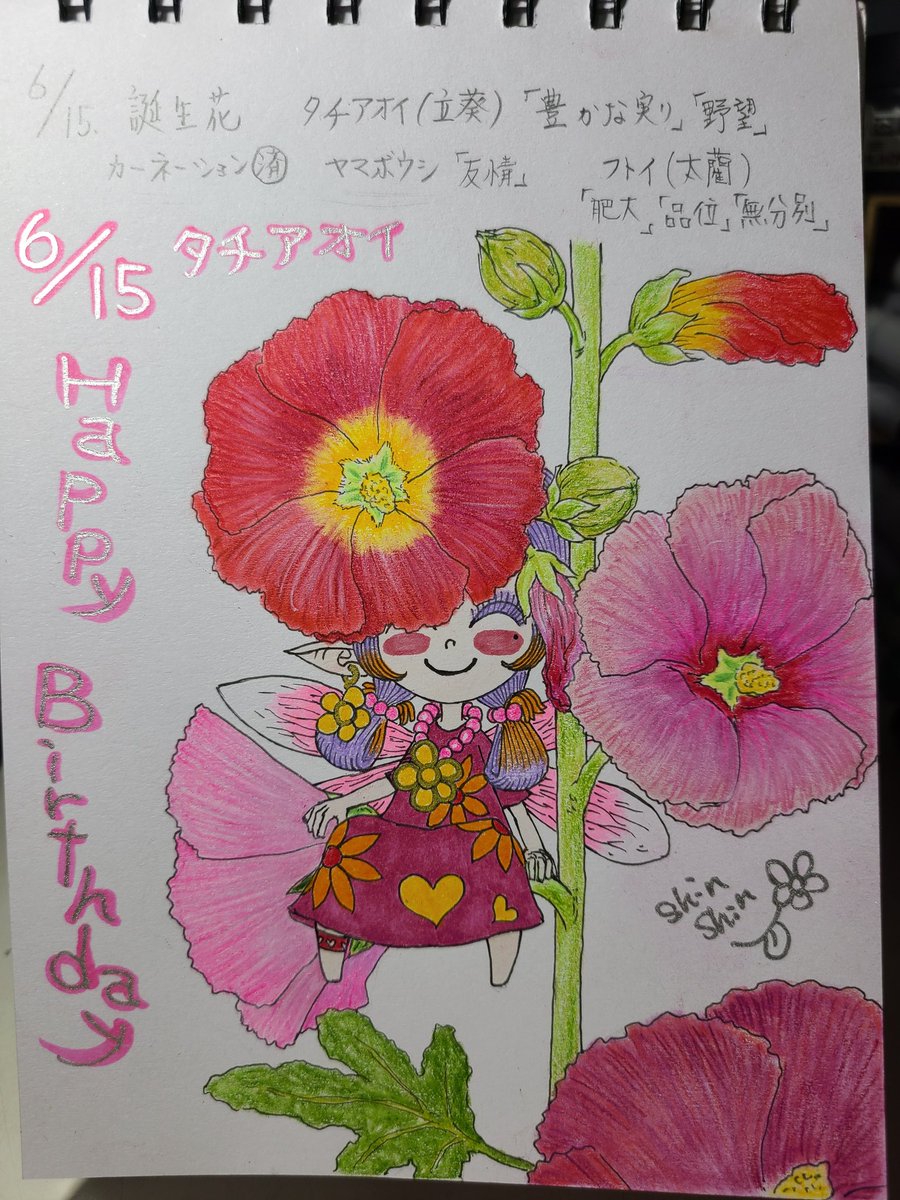 6/15. 誕生花 タチアオイ(立葵)「豊かな実り」「野望」
カーネーション㊮ ヤマボウシ「友情」 フトイ(太藺)
「肥大」「品位」「無分別」
6/15 タチアオイ
Happy Birthday
Shin
Shin